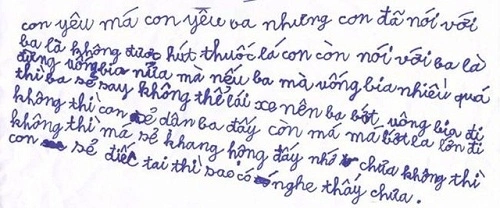 con yêu má con yêu ba nhưng con đã nói với
ba là không được hút thuốc lá con còn nói với ba là
đừng uống bia nữa mà nếu ba mà uống bia nhiều quá
thì ba sẽ say không thể lái xe nên ba bớt uông bia đi
không thì con sẻ dân ba đấy còn má má bớt la lớn đi
không thì má sẻ khang hộng đấy nhớ chưa không thì
con sẻ điếc tai thì sao có nghe thấy chưa.